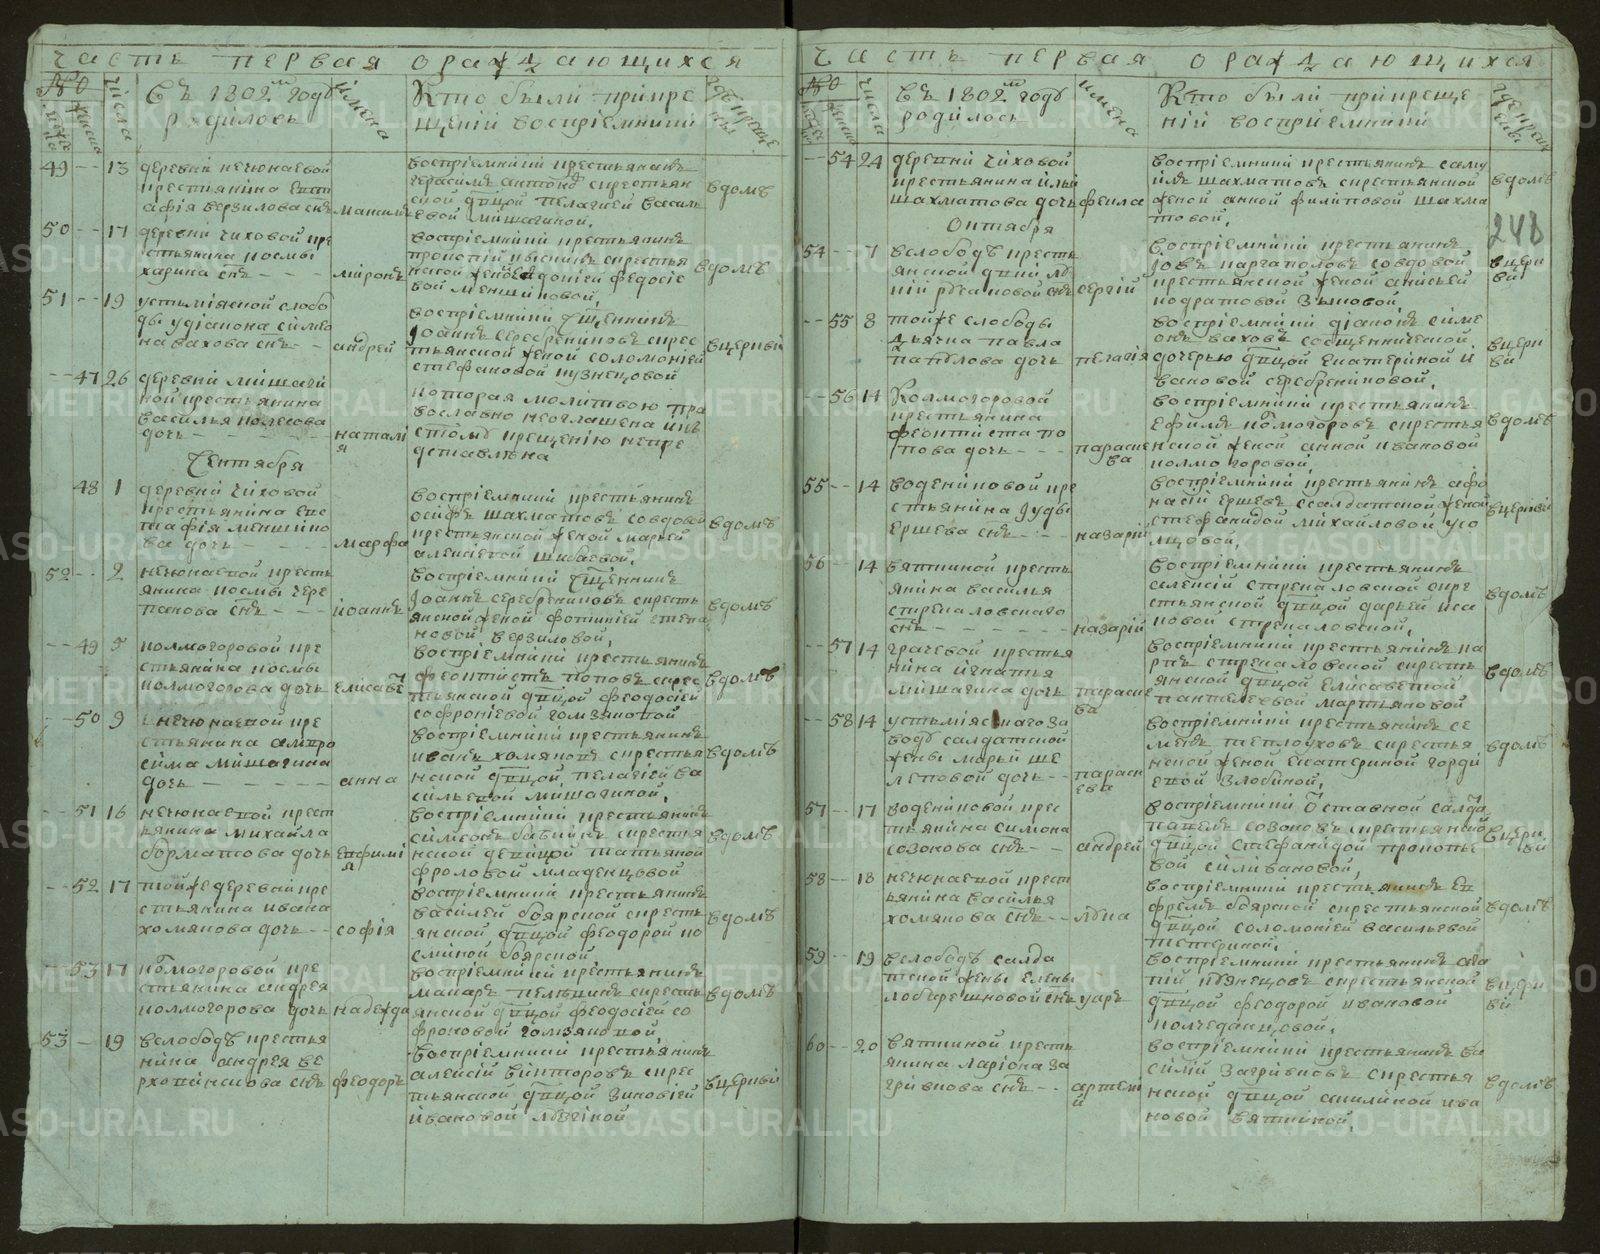 Часть первая ораждающихся
№
числа
Въ 1802м годѣ
родилось
имена
Кто были припре
щении восприемники
49 -- 13 деревни нечюнаевой
крестьянина Евста
афия верзилова снъ
восприемники крестьянинъ
герасимъ антоновъ скрестьян
ской дѣвцой пелагией василь
евой мишагиной,
вдомѣ
50 -- 17 деревни чиховой кре
стьянина космы
харина снъ - - -
миронъ
восприемники крестьянинъ
вдомѣ
51 -- 19 устьмияской слобо
ды удиакона симео
на вахова снъ --
андрей
восприемники сщенникъ
Иоаннъ серебрениковъ скрес
тьянской женой соломонией
стефановой кузнецовой
вцеркви
-- 47 26 деревни мишаги
ной крестьянина
василья колесова
дочь - - - - -
натали
я
которая молитвою пра
вославно неоглашена икъ
столѣ крещению непре
дставлена
Сентября
48 1 деревни чиховой
крестьянина Евс
тафия меншико
ва дочь - - - -
марфа
восприемники крестьянинъ
осифъ шахматовъ совдовой
крестьянской женой марьей
алексеевой шибаевой,
вдомѣ
52 -- 2 нечюнаевой кресть
янина космы чере
панова снъ - - -
иоаннъ
восприемники сщенникъ
Иоаннъ серебрениковъ скресть
янской женой фотинией степа
новой верзиловой,
вдомѣ
-- 49 5 колмогоровой кре
стьянина космы
колмогорова дочь
Елисаве
восприемники крестьянинъ
феоктистъ поповъ скрес
тьянской дѣвцой феодосией
софрониевой гомзяковой
вдомѣ
-- 50 9 нечюнаевой кре
стьянина амвро
сима мишагина
дочь - - - - - -
анна
восприемники крестьянинъ
иванъ хомяковъ скрестья
нской дѣвцой пелагией ва
сильевой мишагиной,
вдомѣ
-- 51 16 нечюнаевой крест
ьянина михаила
борматова дочь
Евфими
я
восприемники крестьянинъ
симеонъ бабинъ скрестья
нской девицой татьяной
фроловой младенцовой
вдомѣ
-- 52 17 тойже деревни кре
стьянина ивана
хомякова дочь --
софия
восприемники крестьянинъ
василей боярской скресть
янской дѣвцой феодорой ко
сминой боярской
вдомѣ
-- 53 17 колмогоровой кре
стьянина андрея
колмогорова дочь
надежда
восприемники крестьянинъ
макаръ пелевинъ скресть
янской дѣвцой феодосией со
фроновой гомзяковой,
вдомѣ
53 - 19 вслободѣ крестья
нина андрея ве
рхотинского снъ
феодоръ
восприемники крестьянинъ
алексий викторовъ скрес
тьянской дѣвцой зиновией
ивановой
вцеркви
Часть первая ораждающихся
№
числа
Въ 1802м годѣ
родилось
имена
Кто были прикреще
нии восприемники
-- 54 24 деревни чиховой
крестьянина ильи
шахматова дочь
фекла
восприемники крестьянинъ саму
илъ шахматовъ скрестьянской
женой анной филиповой шахма
товой,
вдомѣ
248
Октября
54 -- 7 вслободѣ кресть
янской дѣвки
снъ
сергий
восприемники крестьянинъ
Иовъ каргаполовъ совдовой
крестьянской женой анисьей
кодратовой зыковой
вцерк
ви
-- 55 8 тойже слободы
дьячка павла
дочь
пелагия
восприемники диаконъ симе
онъ ваховъ ссщеннической
дочерью дѣвцой Екатериной и
вановой серебрениковой,
вцерк
ви
-- 56 14 Колмогоровой
крестьянина
феоктиста по
пова дочь - - -
параске
ва
восприемники крестьянинъ
Ефимъ колмогоровъ скрестья
нской женой анной ивановой
колмогоровой,
вдомѣ
55 -- 14 воденниковой кре
стьянина Иуды
Ершева снъ - -
назарий
восприемники крестьянинъ афо
насий Ершевъ ссалдатской женой
стефанидой михайловой усо
лцовой,
вцеркви
56 -- 14 вяткиной кресть
янина василья
стрекаловского
снъ - - - - - -
назарий
восприемники крестьянинъ
алексий стрекаловской скре
стьянской дѣвцой дарьей иса
ковой стрекаловской,
вдомѣ
-- 57 14 грачевой крестья
нина игнатья
мишагина дочь
параске
ва
восприемники крестьянинъ ка
рпъ стрекаловской скресть
янской дѣвцой Елисаветой
пантелеевой мартьяновой
вдомѣ
-- 58 14 устьмияскаго за
водѣ салдатской
жены марьи ше
леповой дочь --
параск
ева
восприемники крестьянинъ се
менъ теплоуховъ скрестья
нской женой Екатериной горди
евой злобиной,
вдомѣ
57 -- 17 воденниковой крес
тьянина симона
созонова снъ --
андрей
восприемники отставной салда
павелъ созоновъ скрестьянской
дѣвцой стефанидой прокопье
вой силивановой,
вцерк
ви
58 -- 18 нечюнаевой крест
ьянина василья
хомякова снъ --
лука
восприемники крестьянинъ Ев
фремъ боярской скрестьянской
дѣвцой соломонией васильевой
тетериной,
вдомѣ
59 -- 19 вслободѣ салда
тской жены Елены
снъ
уаръ
восприемники крестьянинъ
скрестьянской
дѣвцой феодорой ивановой
колчеданцовой,
вцерк
ви
60 -- 20 вяткиной кресть
янина лариона за
гривнова снъ --
артеми
й
восприемники крестьянинъ ва
силий загривновъ скрестья
нской дѣвцой акилиной ива
новой вяткиной,
вдомѣ
METRIKI.GASO-URAL.RU